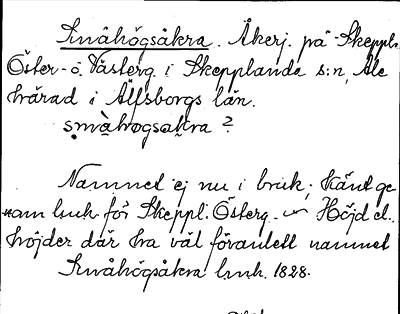 Småhögsåkra. Åkerj. på Skeppl.
Öster- o. Västerg. i Skepplanda s:n, Ale
härad i Älfsborgs län.
smàhøgsakra?
Namnet ej nu i bruk; känt ge
nom hmh för Skeppl. Österg. Höjd el.
höjder där ha väl föranlett namnet
Småhögsåkra hmh. 1828.